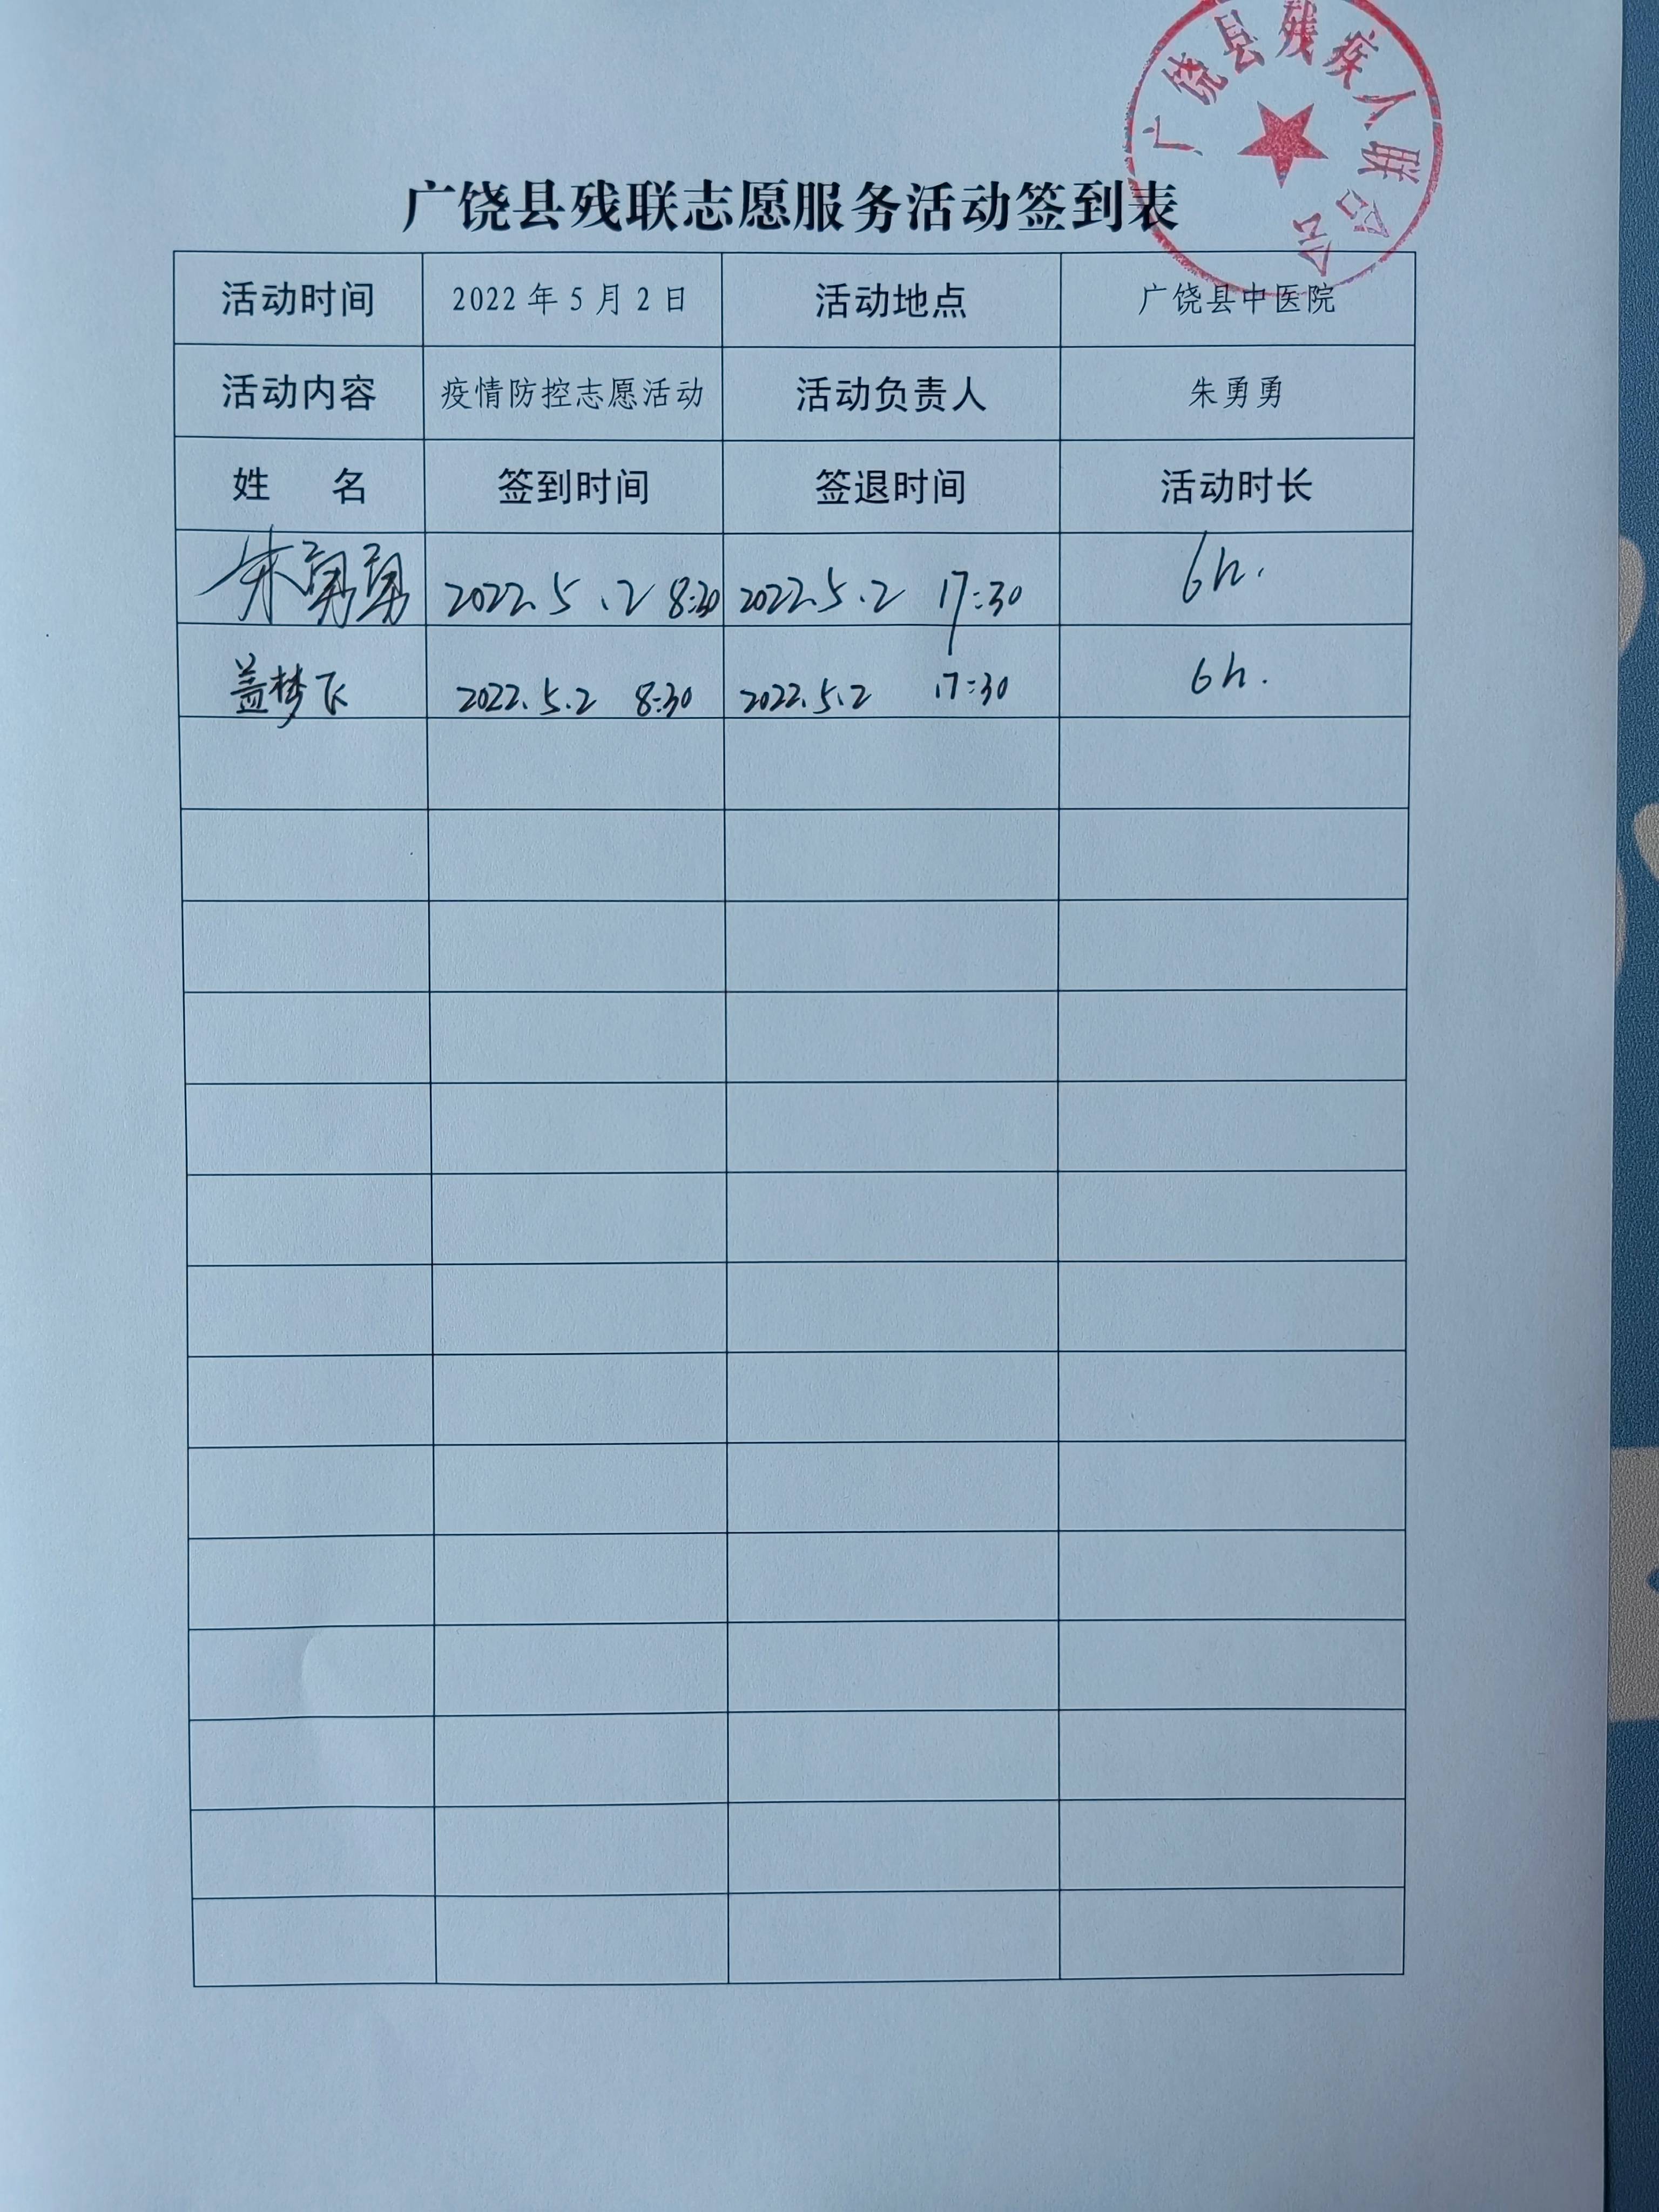 广饶县残疾人联合会
广饶县残联志愿服务活动签到表
活动时间 2022年5月2日 活动地点 广饶县中医院
活动内容 疫情防控志愿活动 活动负责人 朱勇勇
姓 名 签到时间 签退时间 活动时长
朱勇勇 2022.5.2 8:30 2022.5.2 17:30 6h.
盖梦飞 2022.5.2 8:30 2022.5.2 17:30 6h.